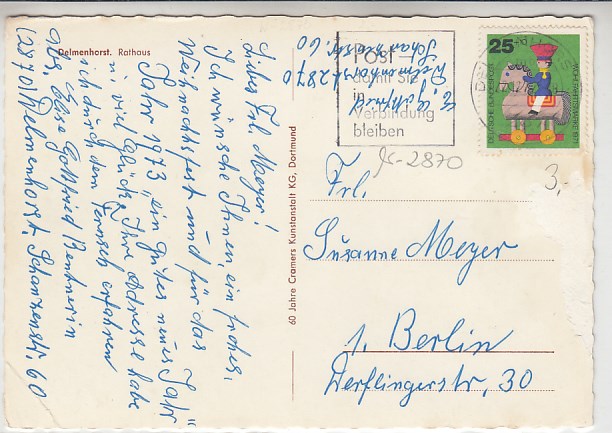 Delmenhorst. Rathaus
Liebes Frl. Maeyer!
Ich wünsche Ihnen, ein frohes,
Weihnachtsfest und für das
Jahr 1973 "ein gutes neues Jahr
m. viel Glück, Ihre Adresse habe
ich durch dem Fernseh erfahren
Abs, Elise Gottfried Rentnerin
(2870) Delmenhorst, Schanzenstr. 60
60 Jahre Cramers Kunstanstalt KG, Dortmund
E. Gottfried
Delmenhorst 2870
Schanzenstr. 60
POST
damit Sie
in
Verbindung
bleiben
25
DEUTSCHE BUNDESPOST
WOHLFAHRTSMARKE 1971
2870
3,-
Frl.
Susanne Meyer
1. Berlin
Derflingerstr, 30